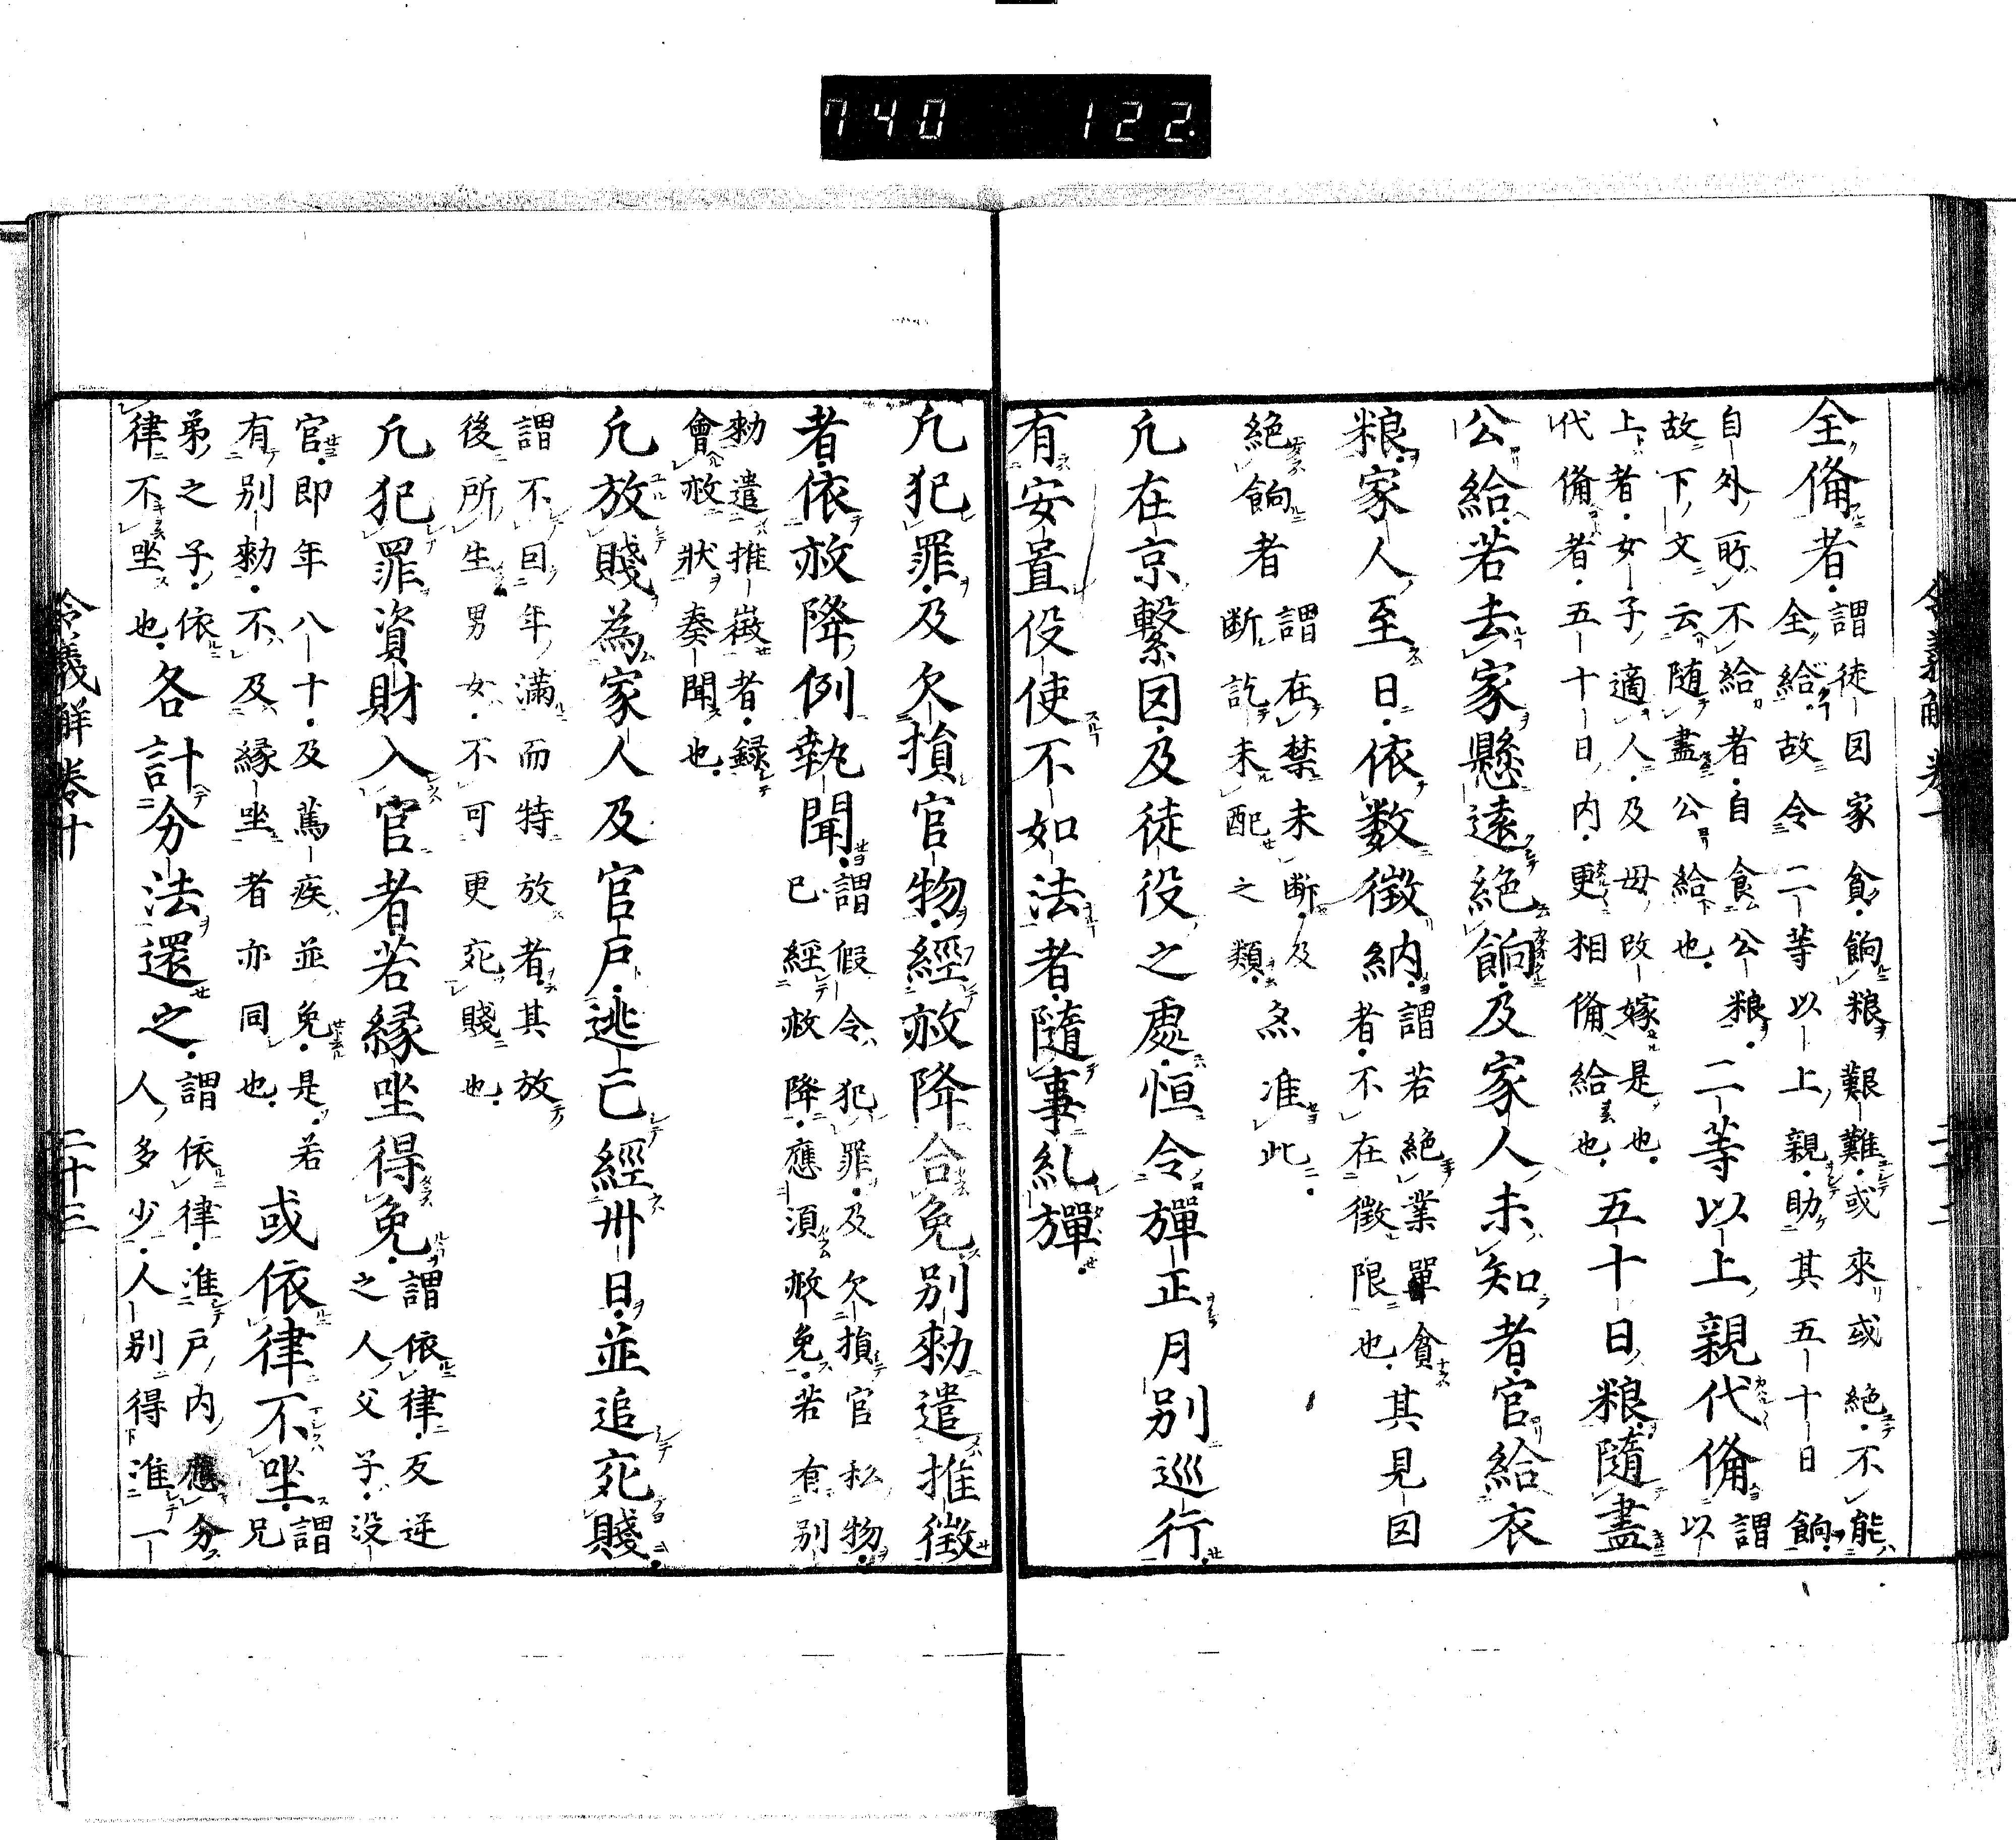 740 122
全備者謂徒囚家貧餉粮艱難或來或絕不能
全給故令二等以上親助其五十日餉
自外所不給者自食公粮二等以上親代備謂以
故下文云随盡公給也
上者女子適人及母改嫁是也五十日粮隨盡
代備者五十日内更相備給也
公給若去家懸遠絕餉及家人未知者官給衣
粮家人至日依數徵納謂若絕業單貧其見囚
者不在徵限也
絕餉者謂在禁未断及㷊准此
断訖未配之類
凢在京繫囚及徒役之處恒令彈正月別巡行
有安置役使不如法者隨事糺彈
凢犯罪及欠損官物經赦降合免別勑遣推徵
者依赦降例執聞謂假令犯罪及欠損官私物
已經赦降應須赦免若有別
勑遣推徵者録
會赦狀奏聞也
凢放賤為家人及官戶逃亡經卅日並追宛賤
謂不因年満而特放者其放
後所生男女不可更宛賤也
凢犯罪資財入官者若緣坐得免謂依律反逆
之人父子没
官即年八十及篤疾並免是若或依律不坐謂
有別勑不及縁坐者亦同也兄
弟之子依各計分法還之謂依律准戶内應分
律不坐也人多少人別得准一
令義解卷十 二十三